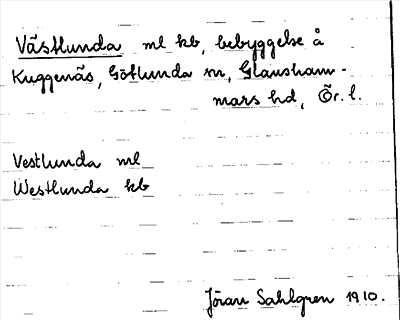 Västlunda ml kb, bebyggelse å
Kuggenäs, Götlunda sn, Glansham-
mars hd, Ör. l.
Vestlunda ml
Westlunda kb
Jöran Sahlgren 1910.